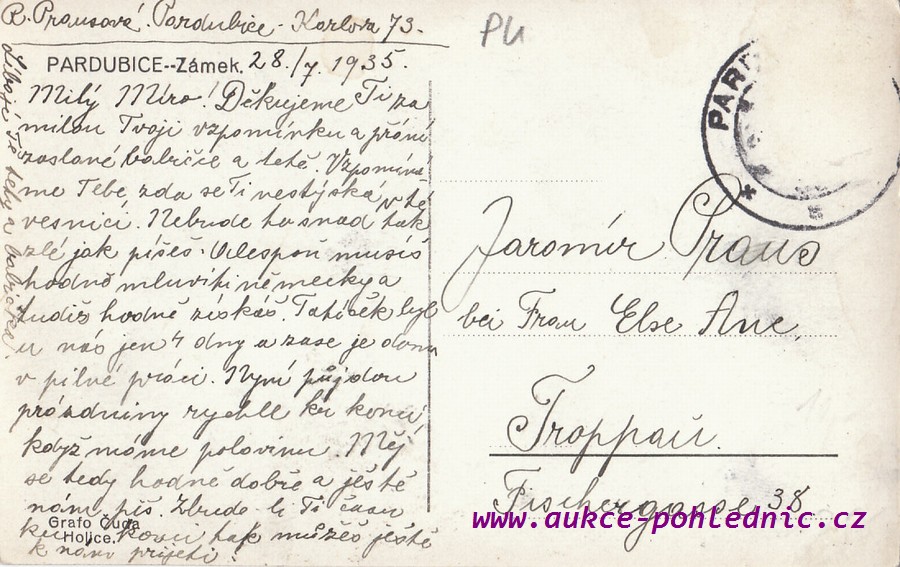 R. Prausová. Pardubice - Karlova 73.
PARDUBICE--Zámek. 28./7. 1935.
Milý Míro! Děkujeme Ti za
milou Tvoji vzpomínku a přání
zaslané babičce a tetě. Vzpomíná
me Tebe, zda se Ti nestýská v té
vesnici. Nebude to snad tak
zlé jak píšeš. Alespoň musíš
hodně mluviti německy a
tudiž hodně získáš. Tatíček byl
u nás jen 4 dny a zase je doma
v pilné práci. Nyní půjdou
prázdniny rychle ku konci,
když máme polovinu. Měj
se tedy hodně dobře a ještě
nám piš. Zbude-li Ti času
ku konci tak můžeš ještě
k nám přijeti.
Líbají Tě tety a babička.
Grafo Čuda
Holice.
PLI
PARD
Jaromír Praus
bei Frau Else Anc,
Troppau.
Fischergasse 38
www.aukce-pohlednic.cz